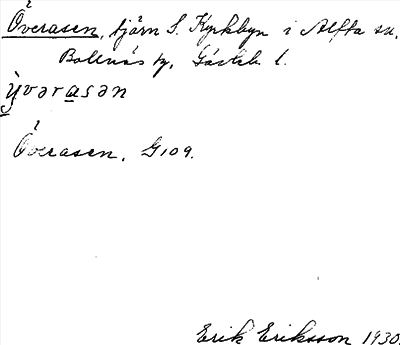 Överasen, tjärn S. Kyrkbyn i Alfta sn,
Bollnäs tg, Gävleb. l.
ỳvərasən
Överasen. G109.
Erik Eriksson 1930.